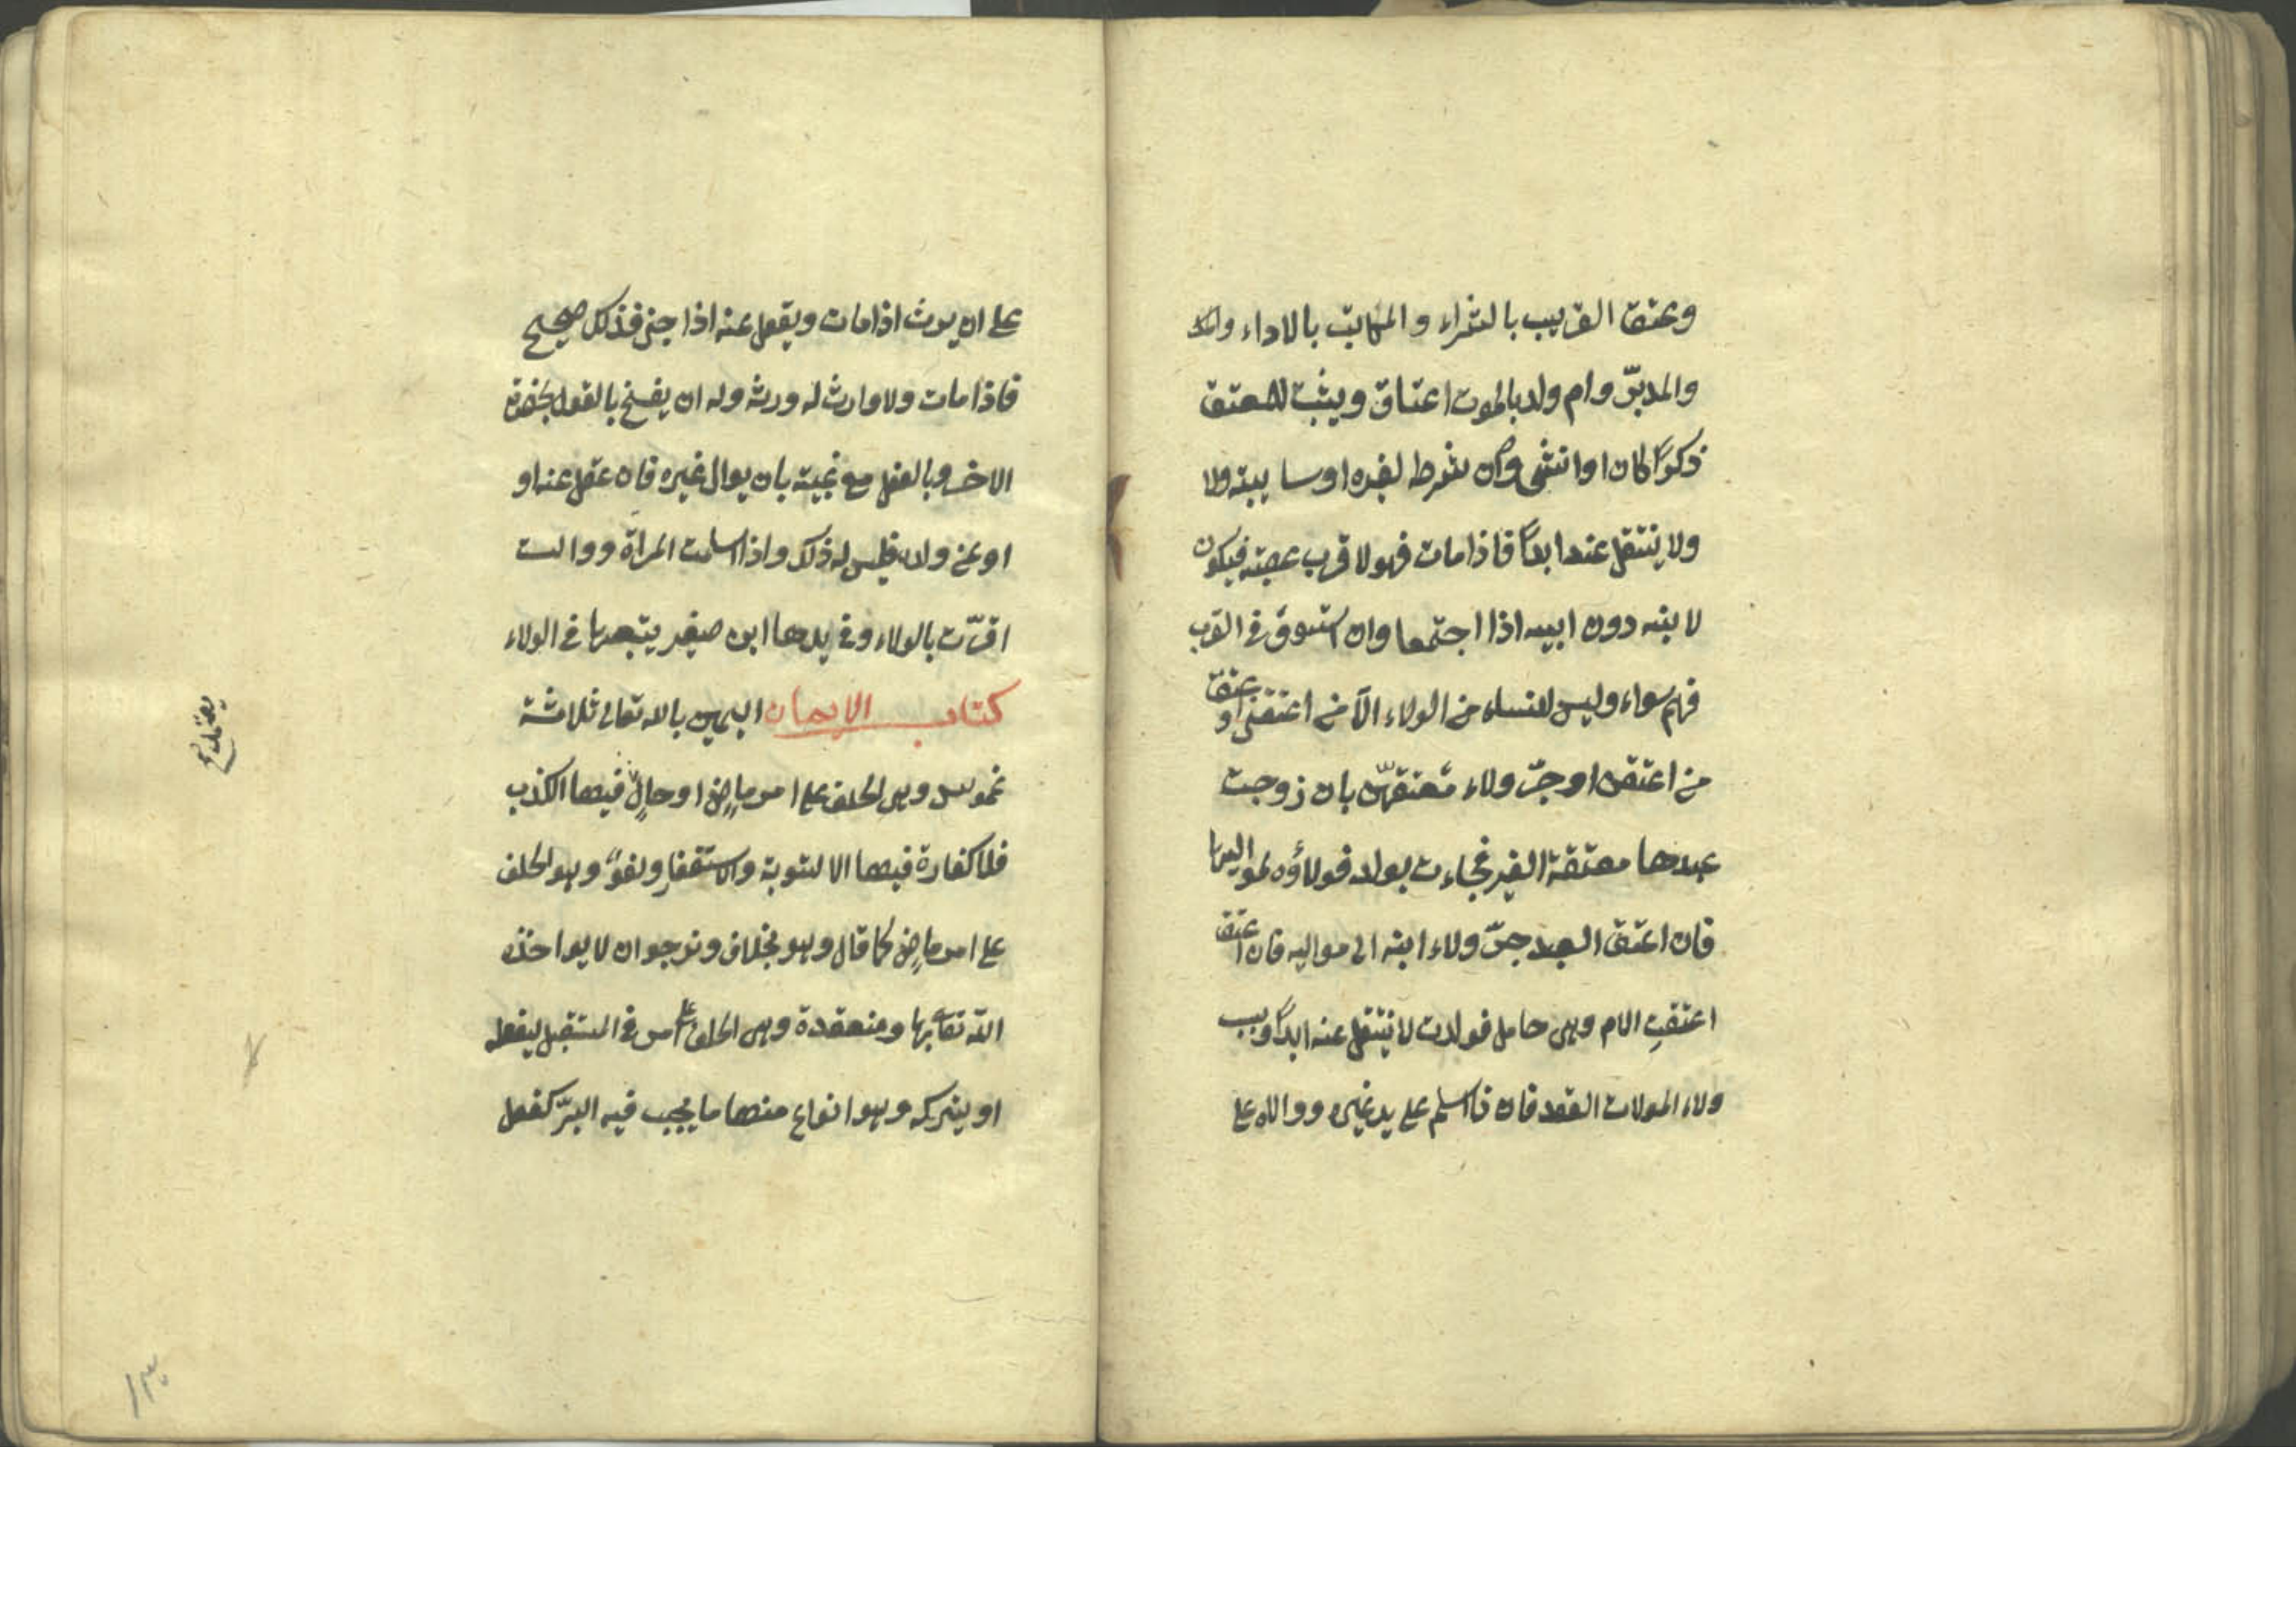 وعتق القريب بالشراء والمكاتب بالاداء
والمدبّر وام ولد بالموت اعتاق ويثبت للمعتق
ذكرًا كان او انثى وان شرط لغيره او سايبته ولا
ولا ينتقل عنه ابدًا فاذا مات فهو لاقرب عصبته فيكون
لابنه دون ابيه اذا اجتمعا وان استووا في القرب
فهم سواء وليس للنساء من الولاء الّا من اعتقن او عتق
من اعتقن او جرّ ولاء معتقهنّ بان زوجت
عبدها معتقة الغير فجاءت بولد فولاؤه لمواليها
فان اعتق العبد جرّ ولاء ابنه الى مواليه فان اعتق
اعتقتِ الام وهي حامل فولدت لا ينتقل عنه ابدًا وسبب
ولاء الموالات العقد فان اسلم على يد غيره ووالاه على
على ان يرث اذا مات ويعقل عنه اذا جنى فذلك صحيح
فاذا مات ولا وارث له ورثه وله ان يفسخ بالقول بحضرة
الاخر وبالفعل مع غيبته بان يوال غيره فان عقل عنه او
او عن ولده فليس له ذلك واذا اسلمت المراة ووالت
اقرّت بالولاء وفي يدها ابن صغير يتبعها في الولاء
كتاب الايمان اليمين بالله تعالى ثلاثة
غموس وهي الحلف على امر ماضٍ او حالٍ فيها الكذب
فلا كفارة فيها الا التوبة والاستغفار ولغوٌ وهو الحلف
على امر ماضٍ كما قال وهو بخلاف ونرجو ان لا يواخذه
الله تعالى بها ومنعقدة وهي الحلف على امر في المستقبل ليفعله
او يتركه وهو انواع منها ما يجب فيه البرّ كفعل
١٣٠